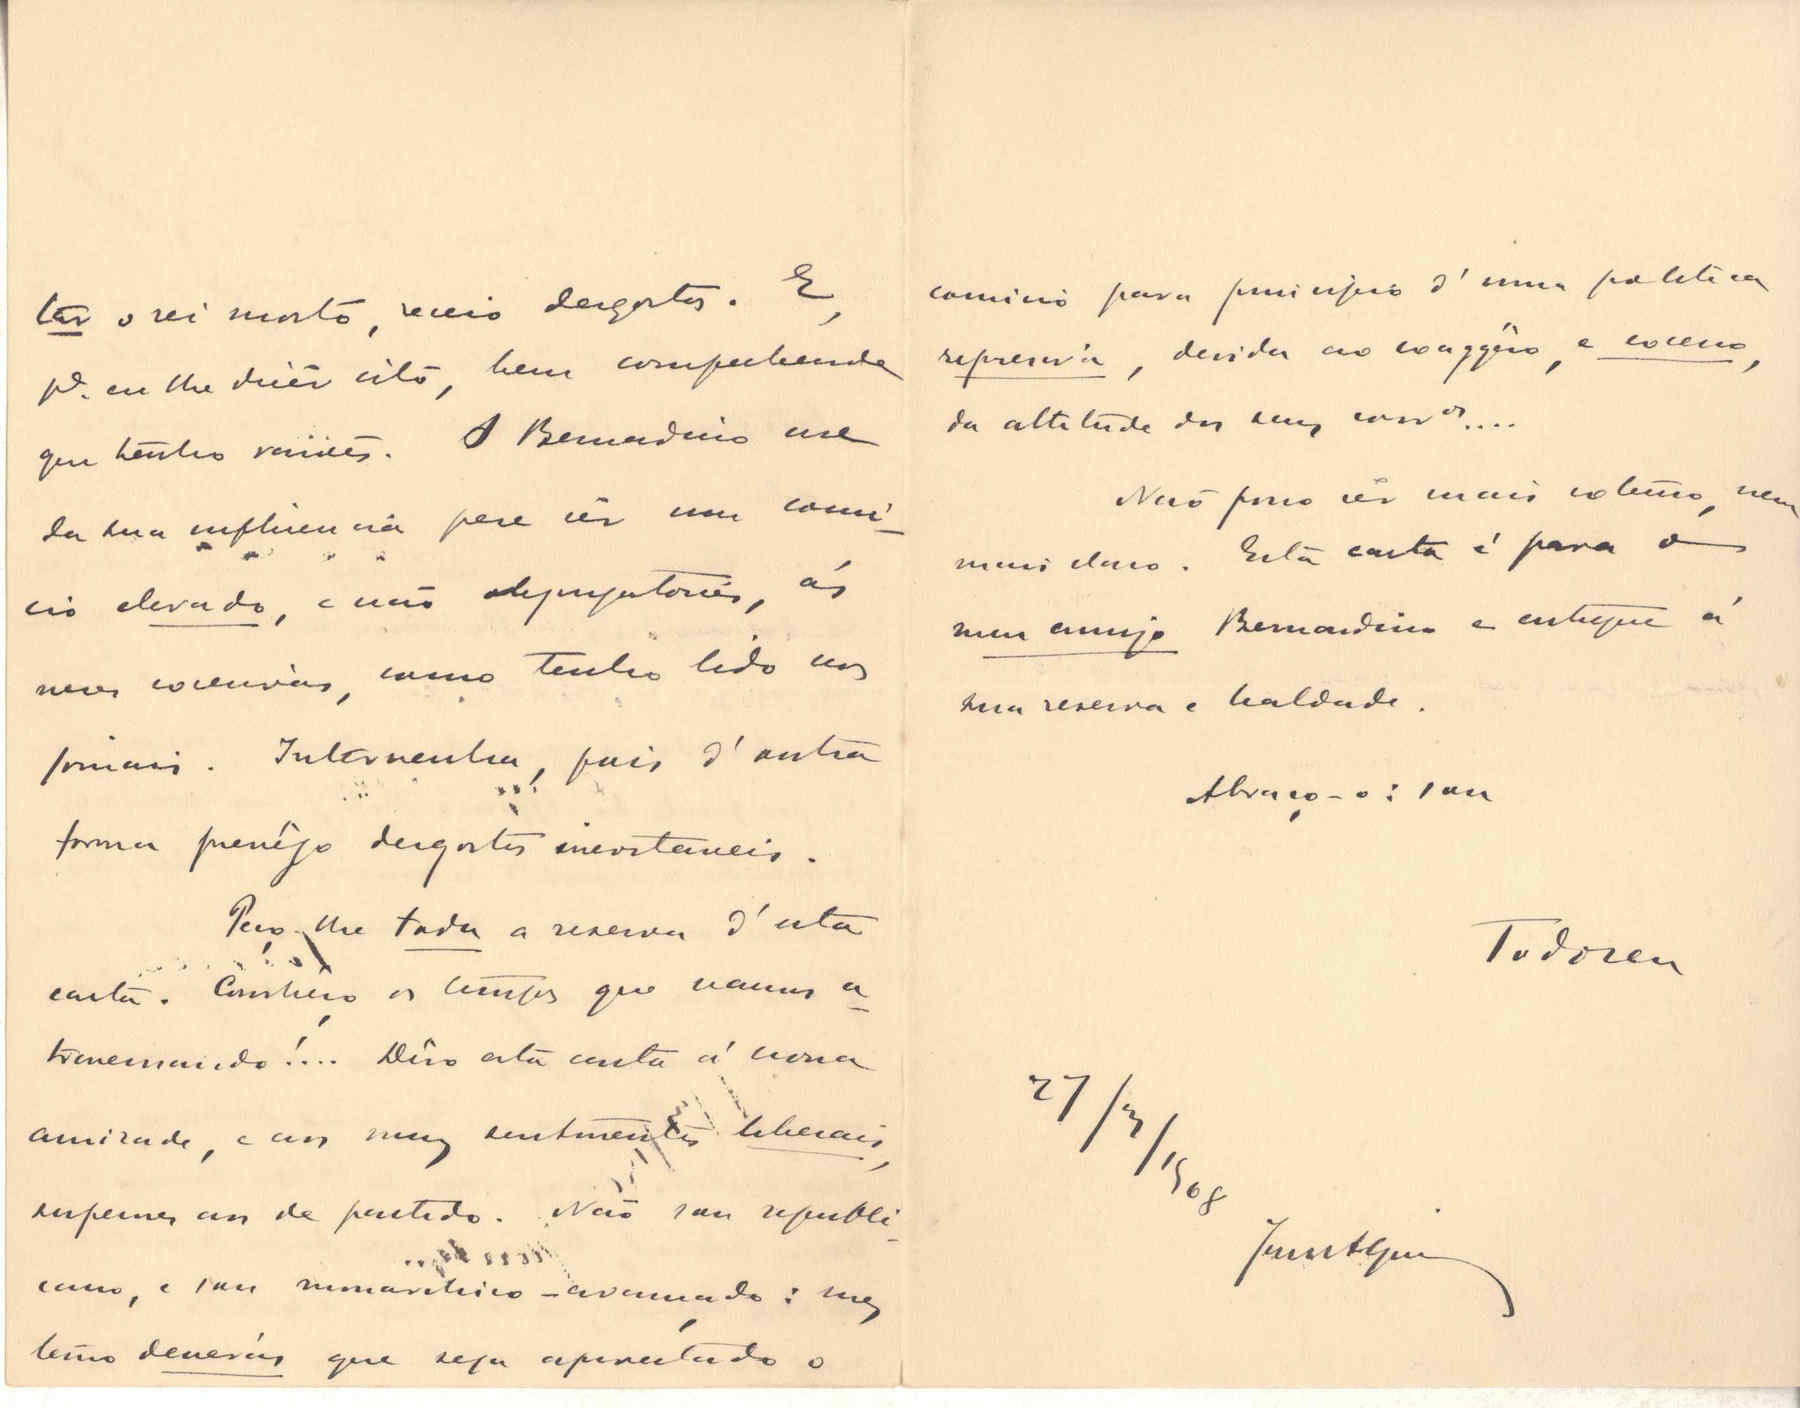 tar o rei morto, receio desgostos. E,
pª. eu lhe dizêr isto, bem comprehende
que tenho razões. O Bernardino use
da sua influencia pera sêr um comi-
cio elevado, e não ás
como tenho lido nos
jornais. Intervenha, pois d'outra
forma prevêjo desgostos inevitaveis.
Peço-lhe toda a reserva d'esta
carta. Conhêço os tempos que vamos a-
travessando!... Dirijo esta carta á nossa
amizade, e aos meus sentimentos liberais,
superiores aos de partido. Não sou republi-
cano, e sou monarchico-avançado: mas
temo deveras que seja aproveitado o
comicio para principio d'uma politica
repressiva, devida ao exaggêro, e excesso,
da attitude dos seus corrºs....
Não posso sêr mais extenso, nem
mais claro. Esta carta é para o
meu amigo Bernardino e entregue á
sua reserva e lealdade.
Abraço-o: sou
Todo seu
27/3/1908